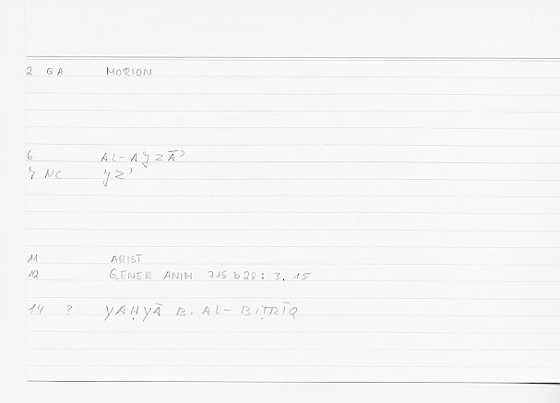 2 QA MORION
6 AL-AYZĀʾ
7 NC YZʾ
11 ARIST
12 GENER ANIM 715 b 28 : 3, 15
14 ? YAḤYĀ B. AL-BIṬRĪQ